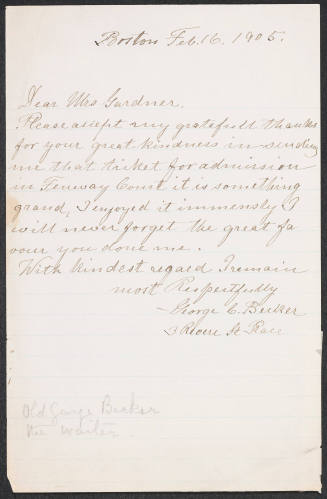 Boston Feb. 16. 1905.
Dear Mrs Gardner.
Please asept my gratefull thanks
for your great kindness in sending
me that ticket for admission
in Fenway Court it is something
grand, I enjoyed it immensly I
will never forget the great fa
vour you done me.
With kindest regard I remain
most Respectfully
George C. Becker
3 Revere St Place
Old George Becker
the waiter.